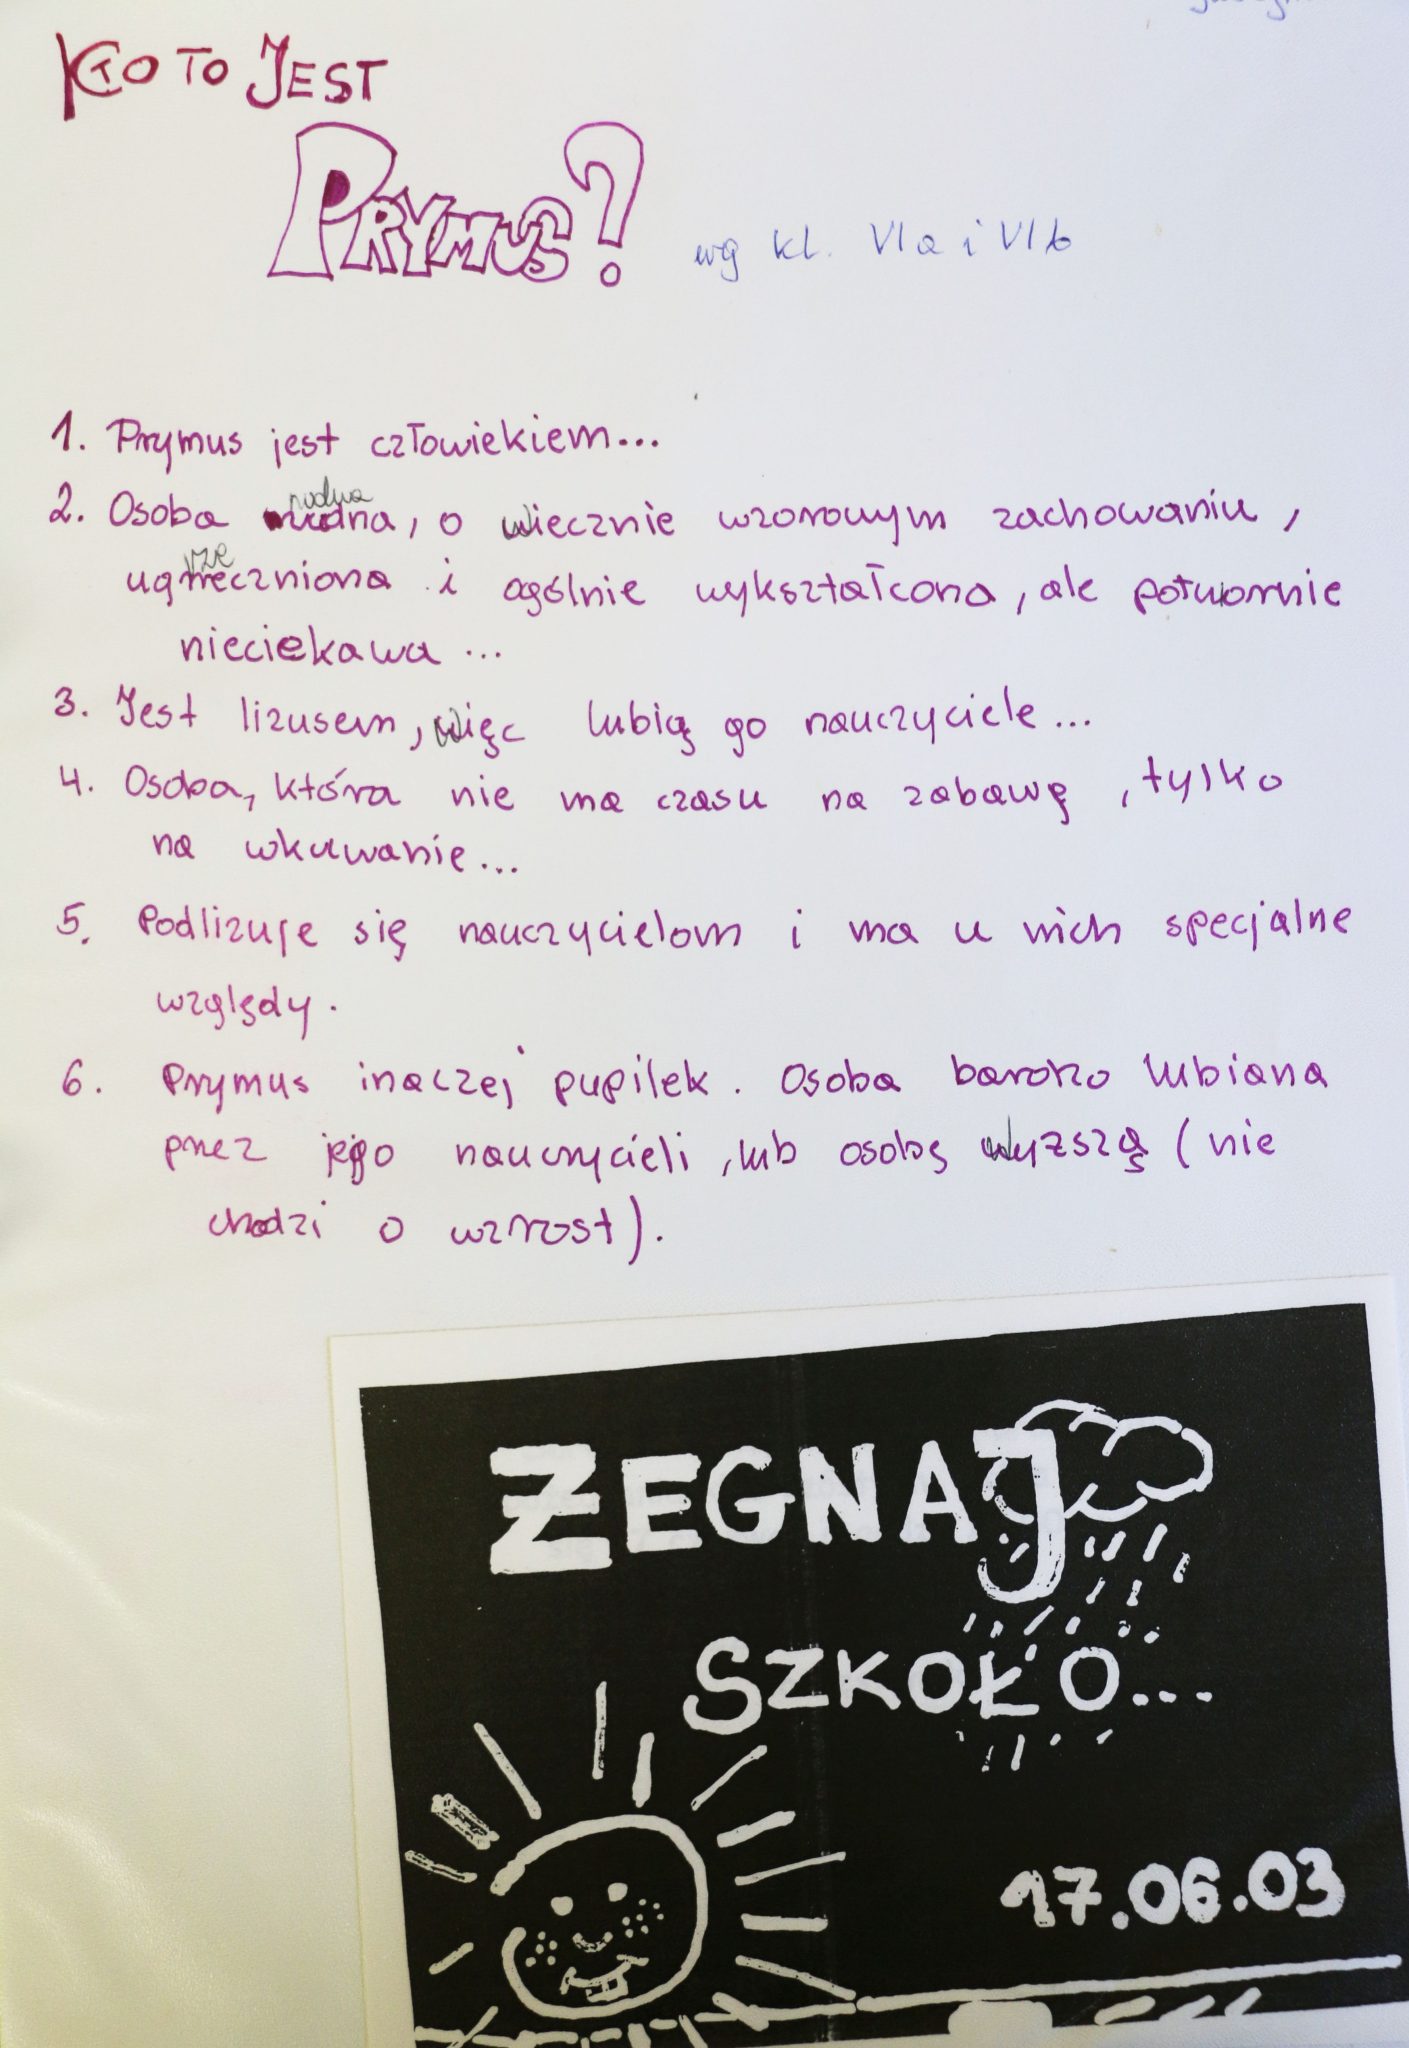 KTO TO JEST
PRYMUS?
wg kl. VI a i VI b
1. Prymus jest człowiekiem...
nudna
2. Osoba nudna, o wiecznie wzorowym zachowaniu,
rze
ugrzeczniona i ogólnie wykształcona, ale potwornie
nieciekawa...
3. Jest lizusem, więc lubią go nauczyciele...
4. Osoba, która nie ma czasu na zabawę, tylko
na wkuwanie...
5. Podlizuje się nauczycielom i ma u nich specjalne
względy.
6. Prymus inaczej pupilek. Osoba bardzo lubiana
przez jego nauczycieli, lub osobę wyższą (nie
chodzi o wzrost).
ŻEGNAJ
SZKOŁO...
17.06.03